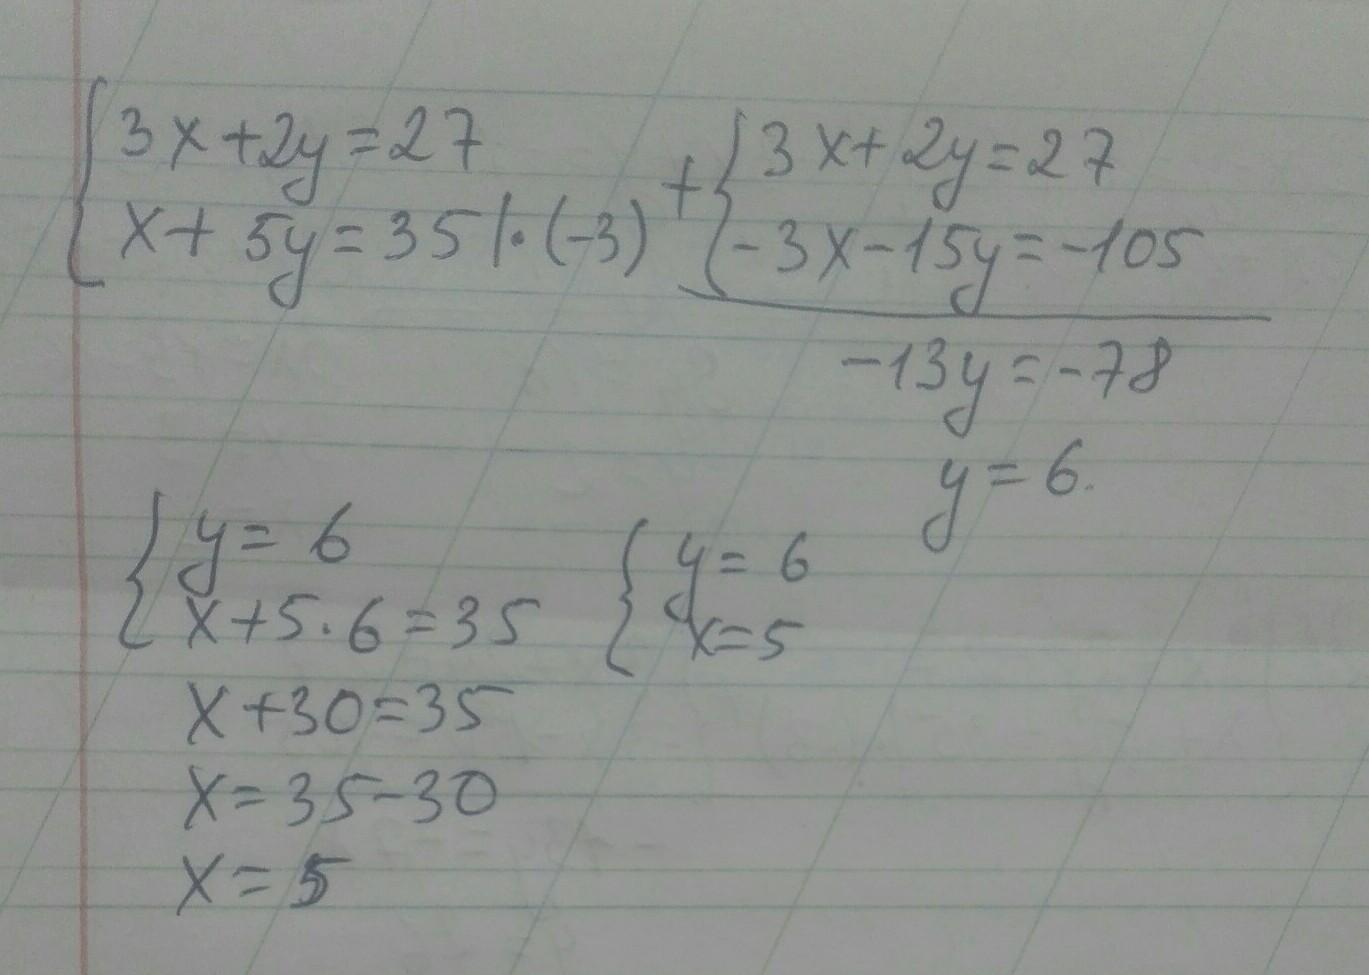 3x+2y=27
x+5y=35 |·(-3)
+
3x+2y=27
-3x-15y=-105
-13y=-78
y=6.
y=6
x+5·6=35
x+30=35
x=35-30
x=5
y=6
x=5